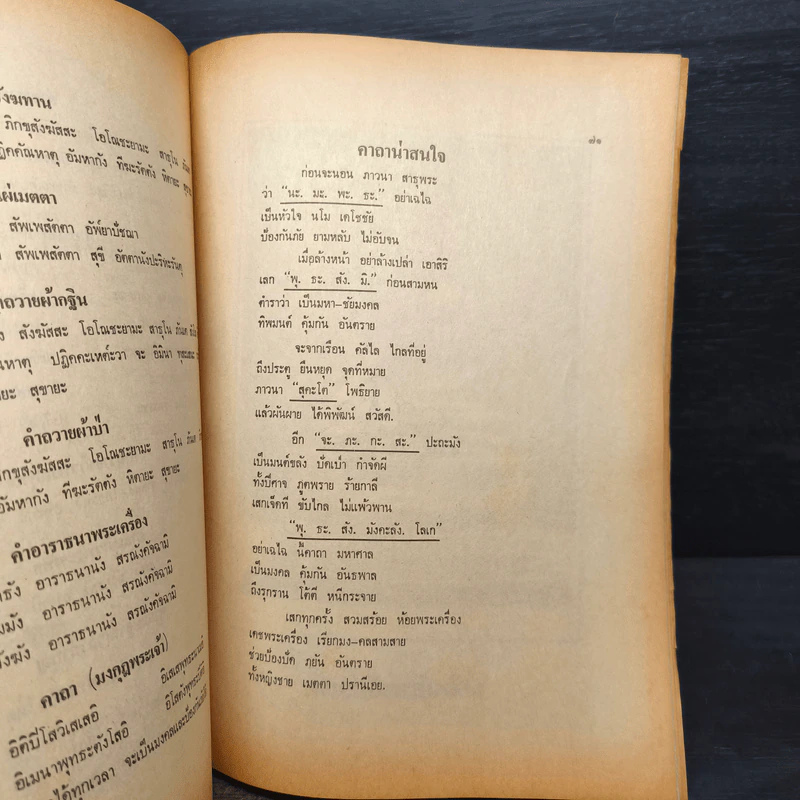 ังฆทาน
ภิกขุสังฆัสสะ โอโณชะยามะ สาธุโน ภันเต
ปฏิคคัณหาตุ อัมหากัง ทีฆะรัตตัง หิตายะ
แผ่เมตตา
สัพเพสัตตา อัพ์ยาปัชฌา
สัพเพสัตตา สุขี อัตตานังปะริหะรันตุ
ำถวายผ้ากฐิน
สังฆัสสะ โอโณชะยามะ สาธุโน ภันเต
ณหาตุ ปฏิคคะเหต๎ะวา จะ อิมินา
ยะ สุขายะ
คำถวายผ้าป่า
ิกขุสังฆัสสะ โอโณชะยามะ สาธุโน ภันเต
อัมหากัง ทีฆะรัตตัง หิตายะ สุขายะ
คำอาราธนาพระเครื่อง
ธัง อาราธนานัง สรณังคัจฉามิ
มมัง อาราธนานัง สรณังคัจฉามิ
ังฆัง อาราธนานัง สรณังคัจฉามิ
คาถา (มงกุฎพระเจ้า)
อิติปิโสวิเสเสอิ อิเสเสพุทธะนาเมอิ
อิเมนาพุทธะตังโสอิ อิโสตังพุทธะปิติอิ
ได้ทุกเวลา จะเป็นมงคลและป้องกัน
๗๑
คาถาน่าสนใจ
ก่อนจะนอน ภาวนา สาธุพระ
ว่า “นะ. มะ. พะ. ธะ.” อย่าเฉไฉ
เป็นหัวใจ นโม เตโชชัย
ป้องกันภัย ยามหลับ ไม่อับจน
เมื่อล้างหน้า อย่าล้างเปล่า เอาสิริ
เสก “พุ. ธะ. สัง. มิ.” ก่อนสามหน
ตำราว่า เป็นมหา-ชัยมงคล
ทิพมนต์ คุ้มกัน อันตราย
จะจากเรือน คัลไล ไกลที่อยู่
ถึงประตู ยืนหยุด จุดที่หมาย
ภาวนา “สุคะโต” โพธิยาย
แล้วผันผาย ได้พิพัฒน์ สวัสดี.
อีก “จะ. ภะ. กะ. สะ.” ปะถะมัง
เป็นมนต์ขลัง บัดเป่า กำจัดผี
ทั้งปีศาจ ภูตพราย ร้ายกาลี
เสกเจ็ดที ขับไกล ไม่แพ้วพาน
“พุ. ธะ. สัง. มังคะลัง. โลเก”
อย่าเฉไฉ นี้คาถา มหาศาล
เป็นมงคล คุ้มกัน อันธพาล
ถึงรุกราน โต้ตี หนีกระจาย
เสกทุกครั้ง สวมสร้อย ห้อยพระเครื่อง
เดชพระเครื่อง เรียกมง-คลสามสาย
ช่วยป้องปัด ภยัน อันตราย
ทั้งหญิงชาย เมตตา ปรานีเอย.